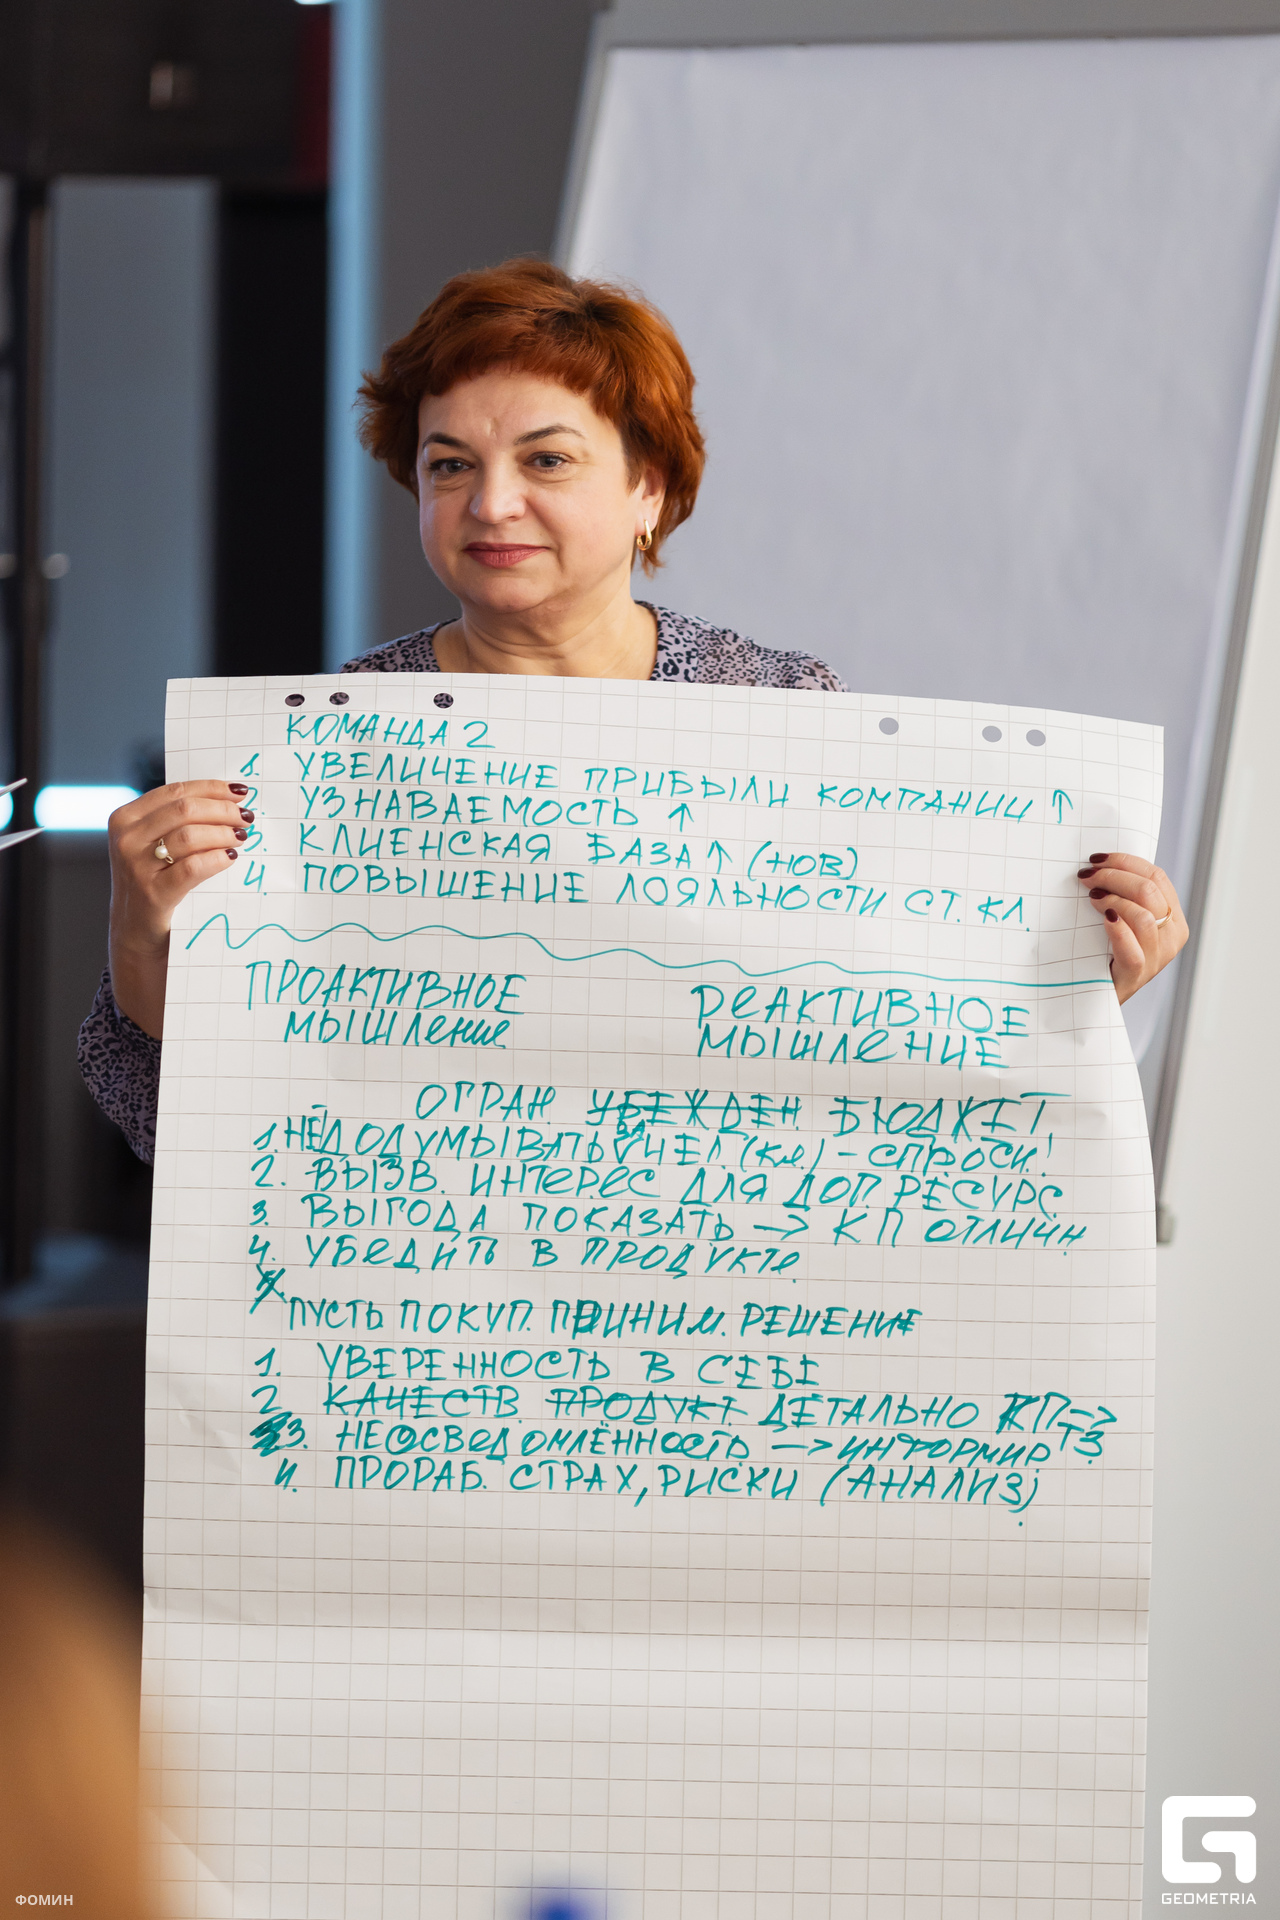 КОМАНДА 2
1. УВЕЛИЧЕНИЕ ПРИБЫЛИ КОМПАНИИ ↑
2. УЗНАВАЕМОСТЬ ↑
3. КЛИЕНСКАЯ БАЗА ↑ (НОВ)
4. ПОВЫШЕНИЕ ЛОЯЛЬНОСТИ СТ. КЛ.
ПРОАКТИВНОЕ
МЫШЛение
РеАКТИВНОЕ
МЫШЛеНИЕ
ОГРАН. УБЕЖДЕН. БЮДЖЕТ
1. НЕ ДОДУМЫВАТЬ ЗА ЧЕЛ. (кл.) – СПРОСИ!
2. ВЫЗВ. ИНТеРЕС ДЛЯ ДОП. РЕСУРС
3. ВЫГОДА ПОКАЗАТЬ → КП ОТЛИЧН
4. УБеДИТЬ В ПРОДУКТе.
ПУСТЬ ПОКУП. ПРИНИМ. РЕШЕНИЕ
1. УВЕРЕННОСТЬ В СЕБЕ
2. КАЧЕСТВ. ПРОДУКТ ДЕТАЛЬНО КП → ТЗ
3. НЕОСВеДОМЛЁННОСТЬ → ИНФОРМИР
4. ПРОРАБ. СТРАХ, РИСКИ (АНАЛИЗ)
ФОМИН
GEOMETRIA